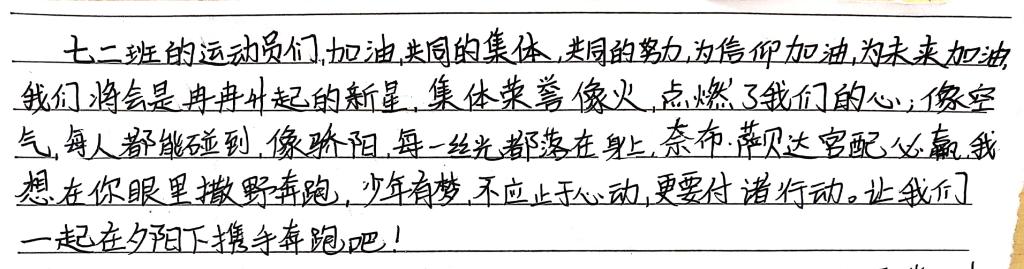 七二班的运动员们,加油,共同的集体,共同的努力,为信仰加油,为未来加油,
我们将会是冉冉升起的新星,集体荣誉像火,点燃了我们的心;像空
气,每人都能碰到,像骄阳,每一丝光都落在身上,奈布·萨贝达宫配必赢,我
想在你眼里撒野奔跑,少年有梦,不应止于心动,更要付诸行动。让我们
一起在夕阳下携手奔跑吧!